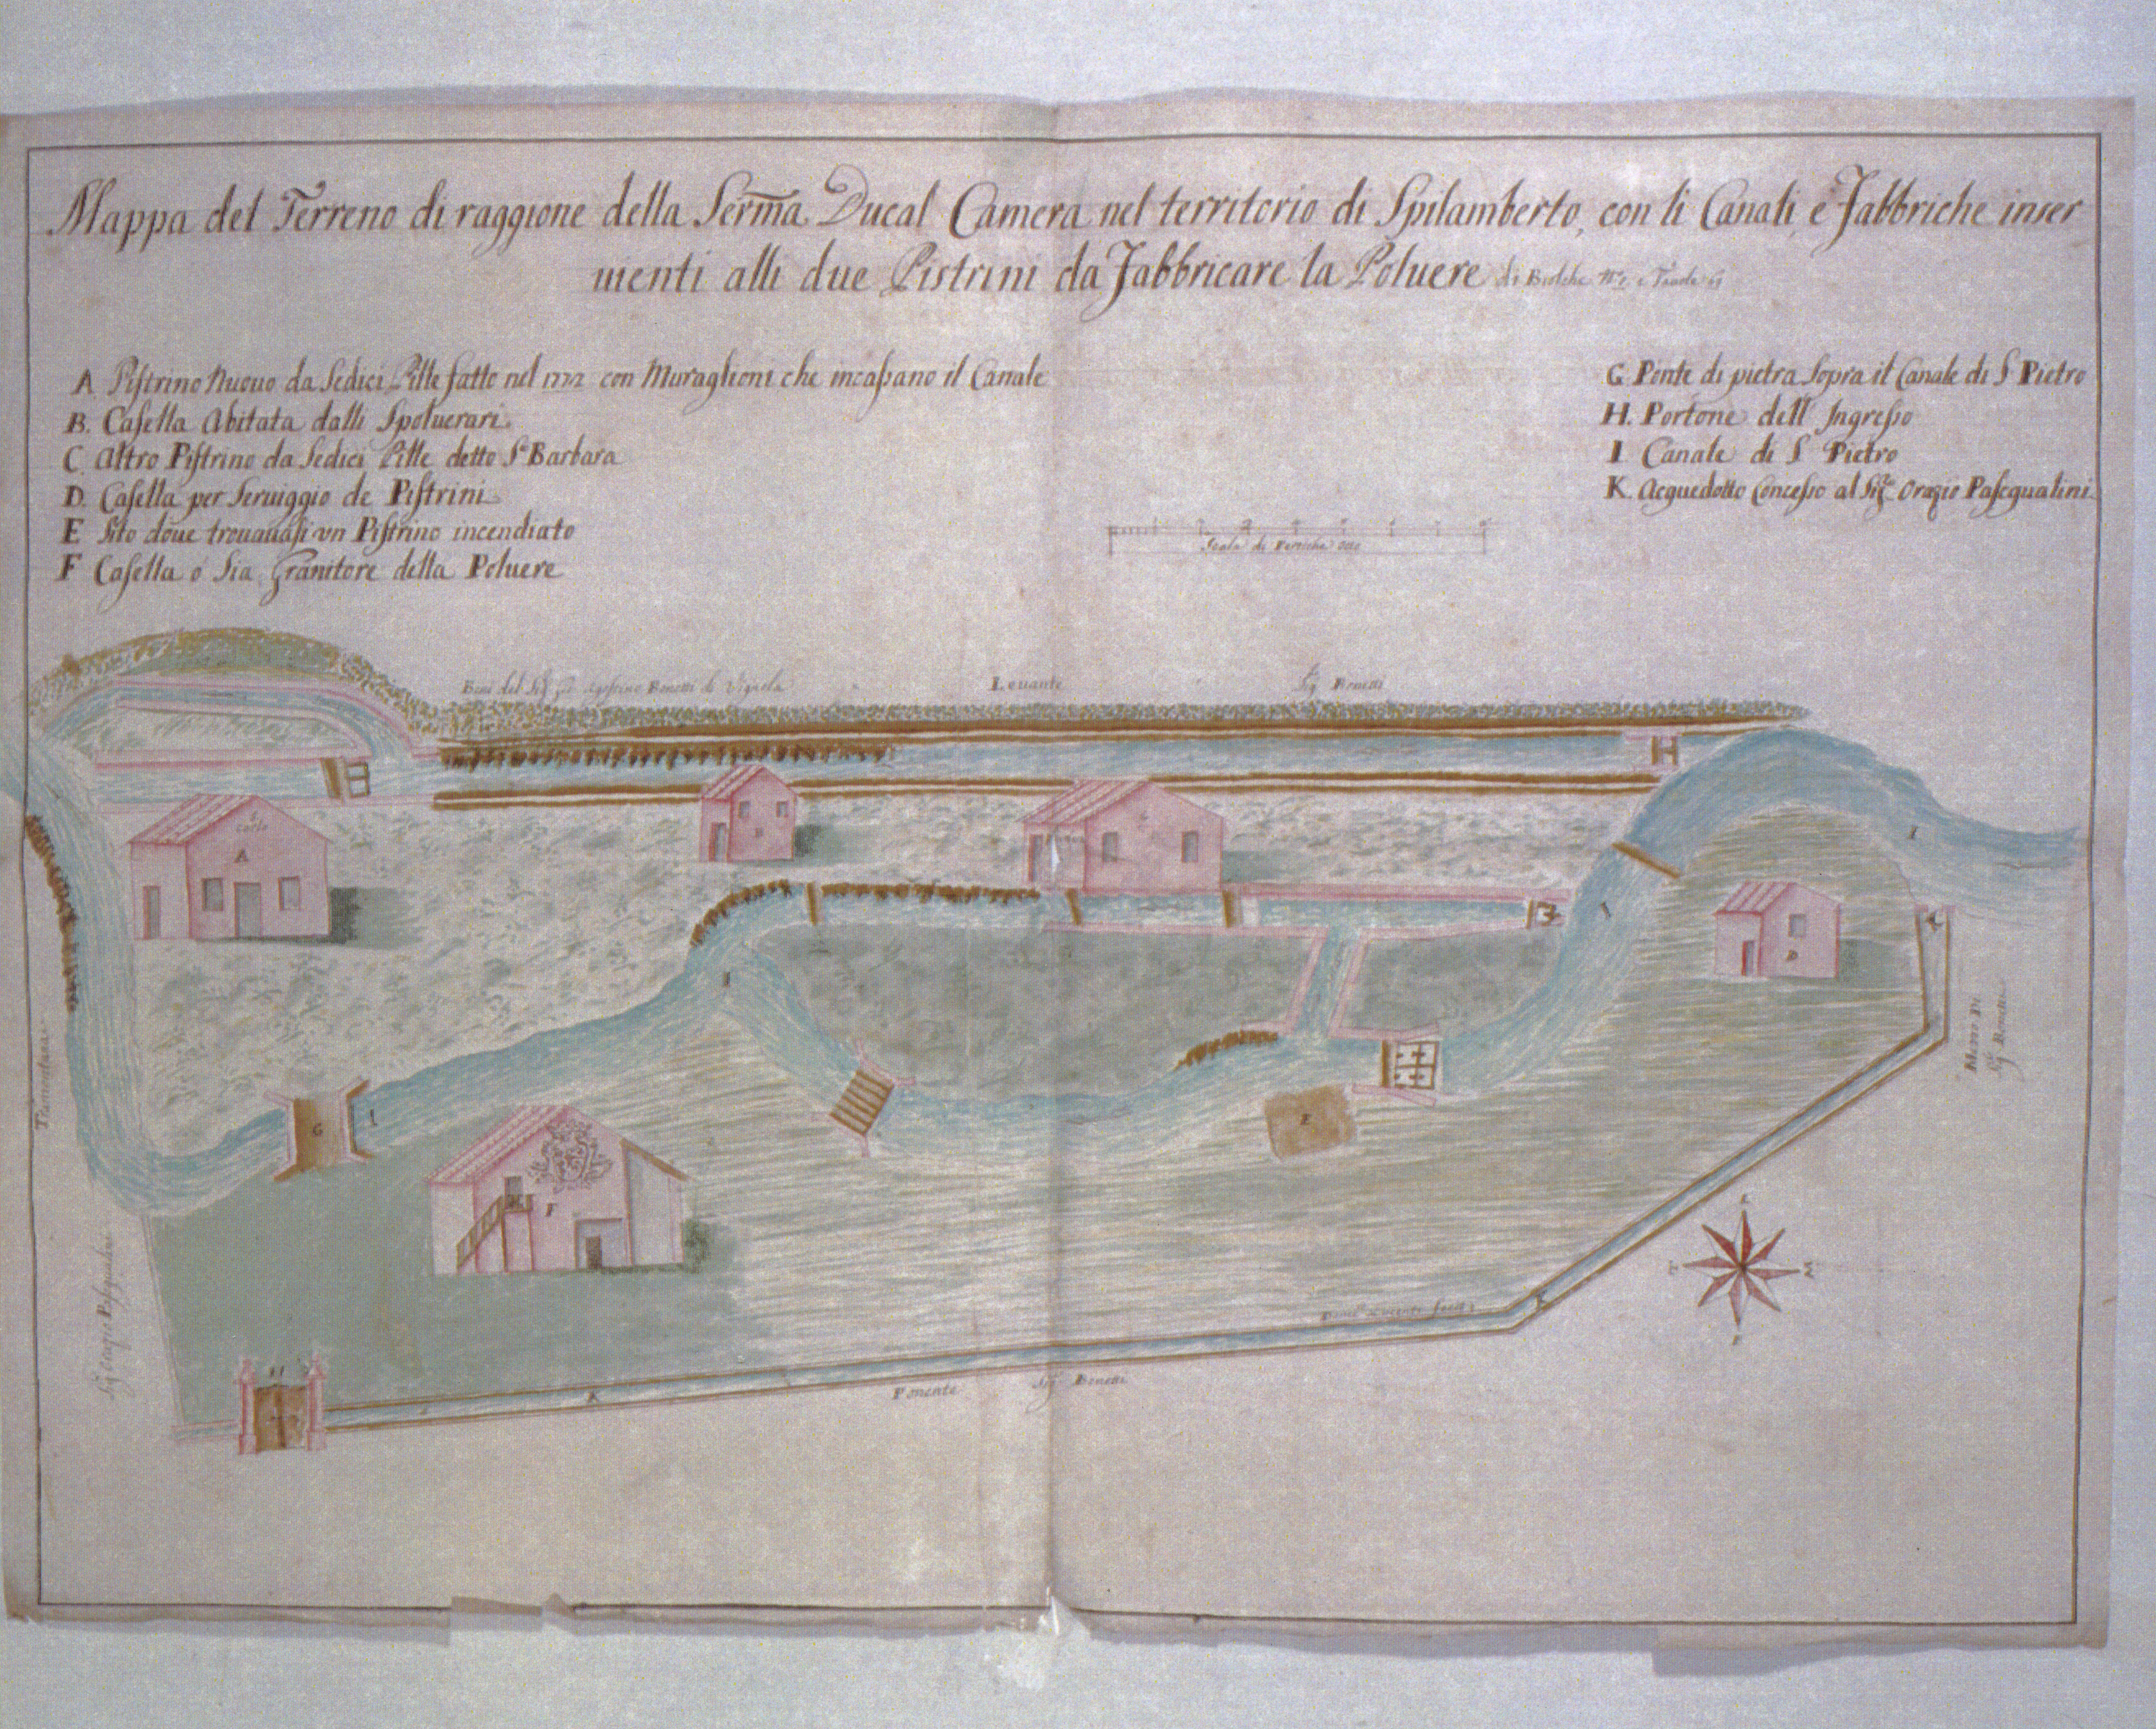 Mappa del Terreno di raggione della Serma. Ducal Camera nel territorio di Spilamberto, con li Canali, e Fabbriche inser
uienti alli due Pistrini da Fabbricare la Poluere di Biolche
A Pistrino Nuouo da Sedici Pille fatto nel con Muraglioni che incassano il Canale
B. Casella Abitata dalli Spoluerari.
C. Altro Pistrino da Sedici Pille detto Sa. Barbara
D. Casella per Seruiggio de Pistrini
E Sito doue trouauasi vn Pistrino incendiato
F Casella ò Sia Granitore della Poluere
G. Ponte di pietra Sopra il Canale di S. Pietro
H. Portone dell' Ingresso
I Canale di S. Pietro
K. Acquedotto Concesso al Sigr. Orazio Pasqualini
Scala di Pertiche otto
Beni del Sigr. Agostino Bonetti di Vignola
Leuante
Sigr. Bonetti
A
I
K
D
I
G
I
E
F
Tramontana
Mezzo Di
Sigr. Bonetti
Sigr. Orazio Pasqualini
H
K
K
Ponente
Sigr. Bonetti